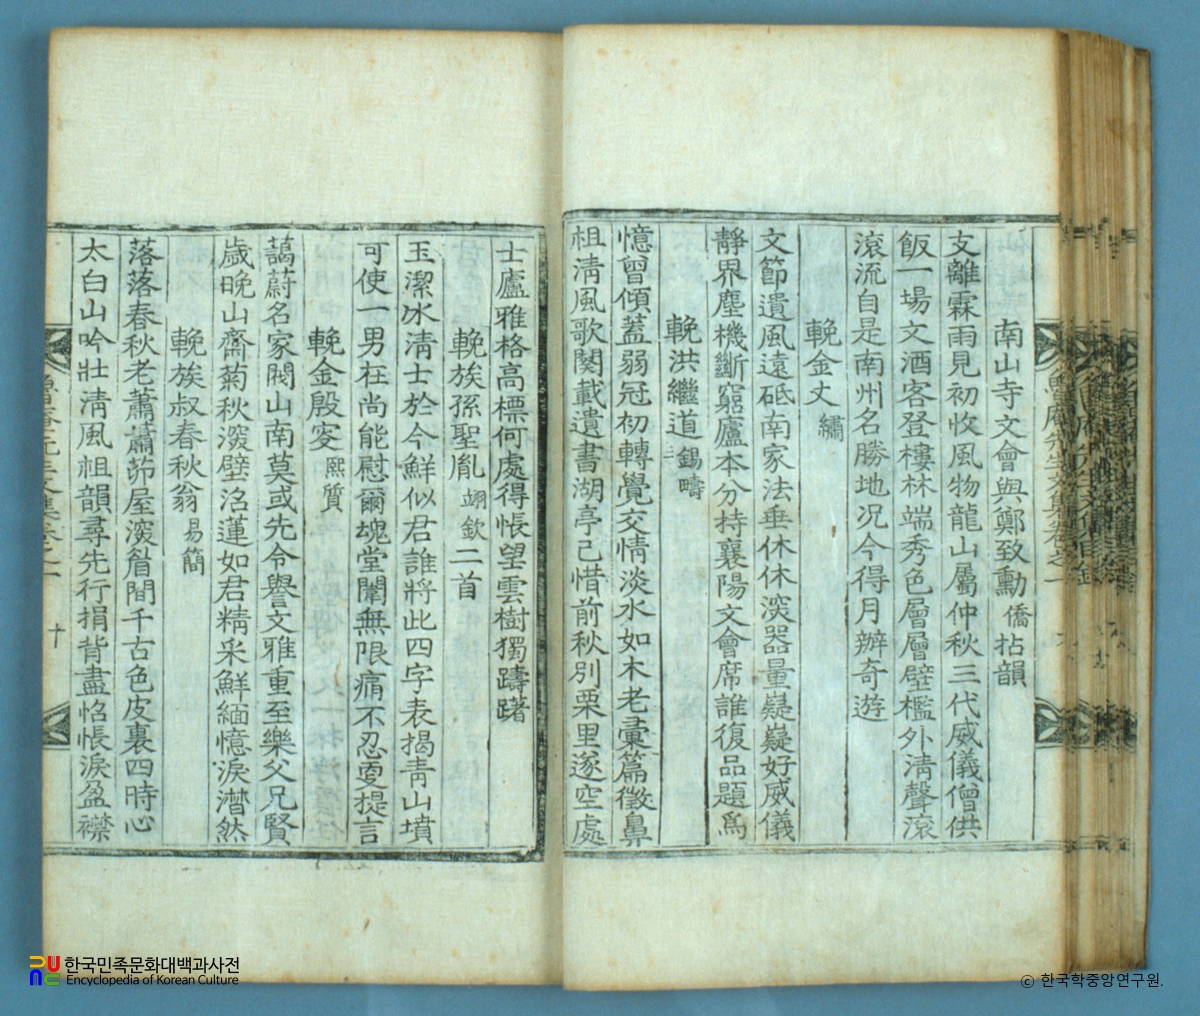 南山寺文會與鄭致勳僑拈韻
支離霖雨見初收風物龍山屬仲秋三代威儀僧供
飯一場文酒客登樓林端秀色層層壁檻外淸聲滚
滚流自是南州名勝地况今得月辦奇遊
輓金丈繡
文節遺風遠砥南家法垂休休深器量嶷嶷好威儀
靜界塵機斷窮廬本分持襄陽文會席誰復品題爲
輓洪繼道錫疇
憶曾傾蓋弱冠初轉覺交情淡水如木老彙篇徵鼻
祖淸風歌闋載遺書湖亭已惜前秋別栗里遂空處
士廬雅格高標何處得悵望雲樹獨躊躇
輓族孫聖胤翊欽二首
玉潔氷淸士於今鮮似君誰將此四字表揭靑山墳
可使一男在尚能慰爾魂堂闈無限痛不忍更提言
輓金殷安熙質
藹蔚名家閥山南莫或先令譽文雅重至樂父兄賢
歲晚山齋菊秋深壁沼蓮如君精采鮮緬憶淚潸然
輓族叔春秋翁易簡
落落春秋老蕭蕭茆屋深眉間千古色皮裏四時心
太白山吟壯淸風祖韻尋先行捐背盡怊悵淚盈襟
十
한국민족문화대백과사전
Encyclopedia of Korean Culture
© 한국학중앙연구원.